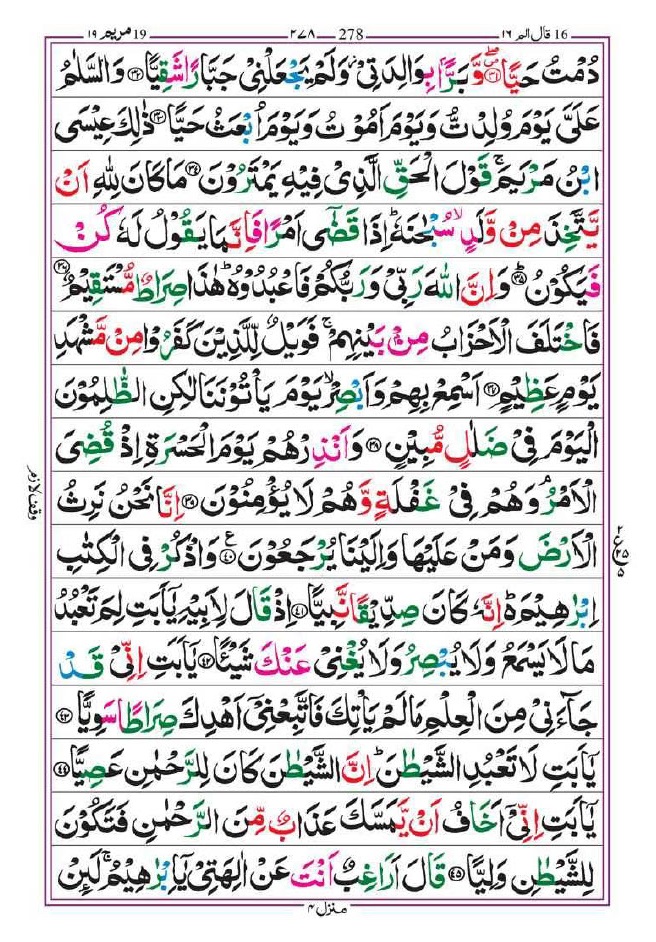 16 قال الم ١٦ 278 ٢٧٨ 19 مريم ١٩
دُمْتُ حَيًّا ۪ۖ‏﴿۳۱﴾ وَّ بَرًّۢا بِوَالِدَتِیْ٘ وَلَمْ یَجْعَلْنِیْ جَبَّارًا شَقِیًّا ﴿۳۲﴾ وَالسَّلٰمُ
عَلَیَّ یَوْمَ وُلِدْتُّ وَیَوْمَ اَمُوْتُ وَیَوْمَ اُبْعَثُ حَیًّا ﴿۳۳﴾ ذٰلِكَ عِیْسَی
ابْنُ مَرْیَمَ ۚ قَوْلَ الْحَقِّ الَّذِیْ فِیْهِ یَمْتَرُوْنَ ﴿۳۴﴾ مَا كَانَ لِلّٰهِ اَنْ
یَّتَّخِذَ مِنْ وَّلَدٍ ۙ سُبْحٰنَهٗ ؕ اِذَا قَضٰۤی اَمْرًا فَاِنَّمَا یَقُوْلُ لَهٗ كُنْ
فَیَكُوْنُ ﴿۳۵﴾ ؕ وَاِنَّ اللّٰهَ رَبِّیْ وَرَبُّكُمْ فَاعْبُدُوْهُ ؕ هٰذَا صِرَاطٌ مُّسْتَقِیْمٌ ﴿۳۶﴾
فَاخْتَلَفَ الْاَحْزَابُ مِنْۢ بَیْنِهِمْ ۚ فَوَیْلٌ لِّلَّذِیْنَ كَفَرُوْا مِنْ مَّشْهَدِ
یَوْمٍ عَظِیْمٍ ﴿۳۷﴾ اَسْمِعْ بِهِمْ وَاَبْصِرْ ۙ یَوْمَ یَاْتُوْنَنَا لٰكِنِ الظّٰلِمُوْنَ
الْیَوْمَ فِیْ ضَلٰلٍ مُّبِیْنٍ ﴿۳۸﴾ وَاَنْذِرْهُمْ یَوْمَ الْحَسْرَةِ اِذْ قُضِیَ
الْاَمْرُ ۘ وَهُمْ فِیْ غَفْلَةٍ وَّهُمْ لَا یُؤْمِنُوْنَ ﴿۳۹﴾ اِنَّا نَحْنُ نَرِثُ
وقف لازم
الْاَرْضَ وَمَنْ عَلَیْهَا وَاِلَیْنَا یُرْجَعُوْنَ ﴿۴۰﴾ ع وَاذْكُرْ فِی الْكِتٰبِ
٢ ع ٢٥ ٥
اِبْرٰهِیْمَ ؕ۬ اِنَّهٗ كَانَ صِدِّیْقًا نَّبِیًّا ﴿۴۱﴾ اِذْ قَالَ لِاَبِیْهِ یٰۤاَبَتِ لِمَ تَعْبُدُ
مَا لَا یَسْمَعُ وَلَا یُبْصِرُ وَلَا یُغْنِیْ عَنْكَ شَیْـًٔا ﴿۴۲﴾ یٰۤاَبَتِ اِنِّیْ قَدْ
جَآءَنِیْ مِنَ الْعِلْمِ مَا لَمْ یَاْتِكَ فَاتَّبِعْنِیْۤ اَهْدِكَ صِرَاطًا سَوِیًّا ﴿۴۳﴾
یٰۤاَبَتِ لَا تَعْبُدِ الشَّیْطٰنَ ؕ اِنَّ الشَّیْطٰنَ كَانَ لِلرَّحْمٰنِ عَصِیًّا ﴿۴۴﴾
یٰۤاَبَتِ اِنِّیْۤ اَخَافُ اَنْ یَّمَسَّكَ عَذَابٌ مِّنَ الرَّحْمٰنِ فَتَكُوْنَ
لِلشَّیْطٰنِ وَلِیًّا ﴿۴۵﴾ قَالَ اَرَاغِبٌ اَنْتَ عَنْ اٰلِهَتِیْ یٰۤاِبْرٰهِیْمُ ۚ لَىِٕنْ
منزل ٤